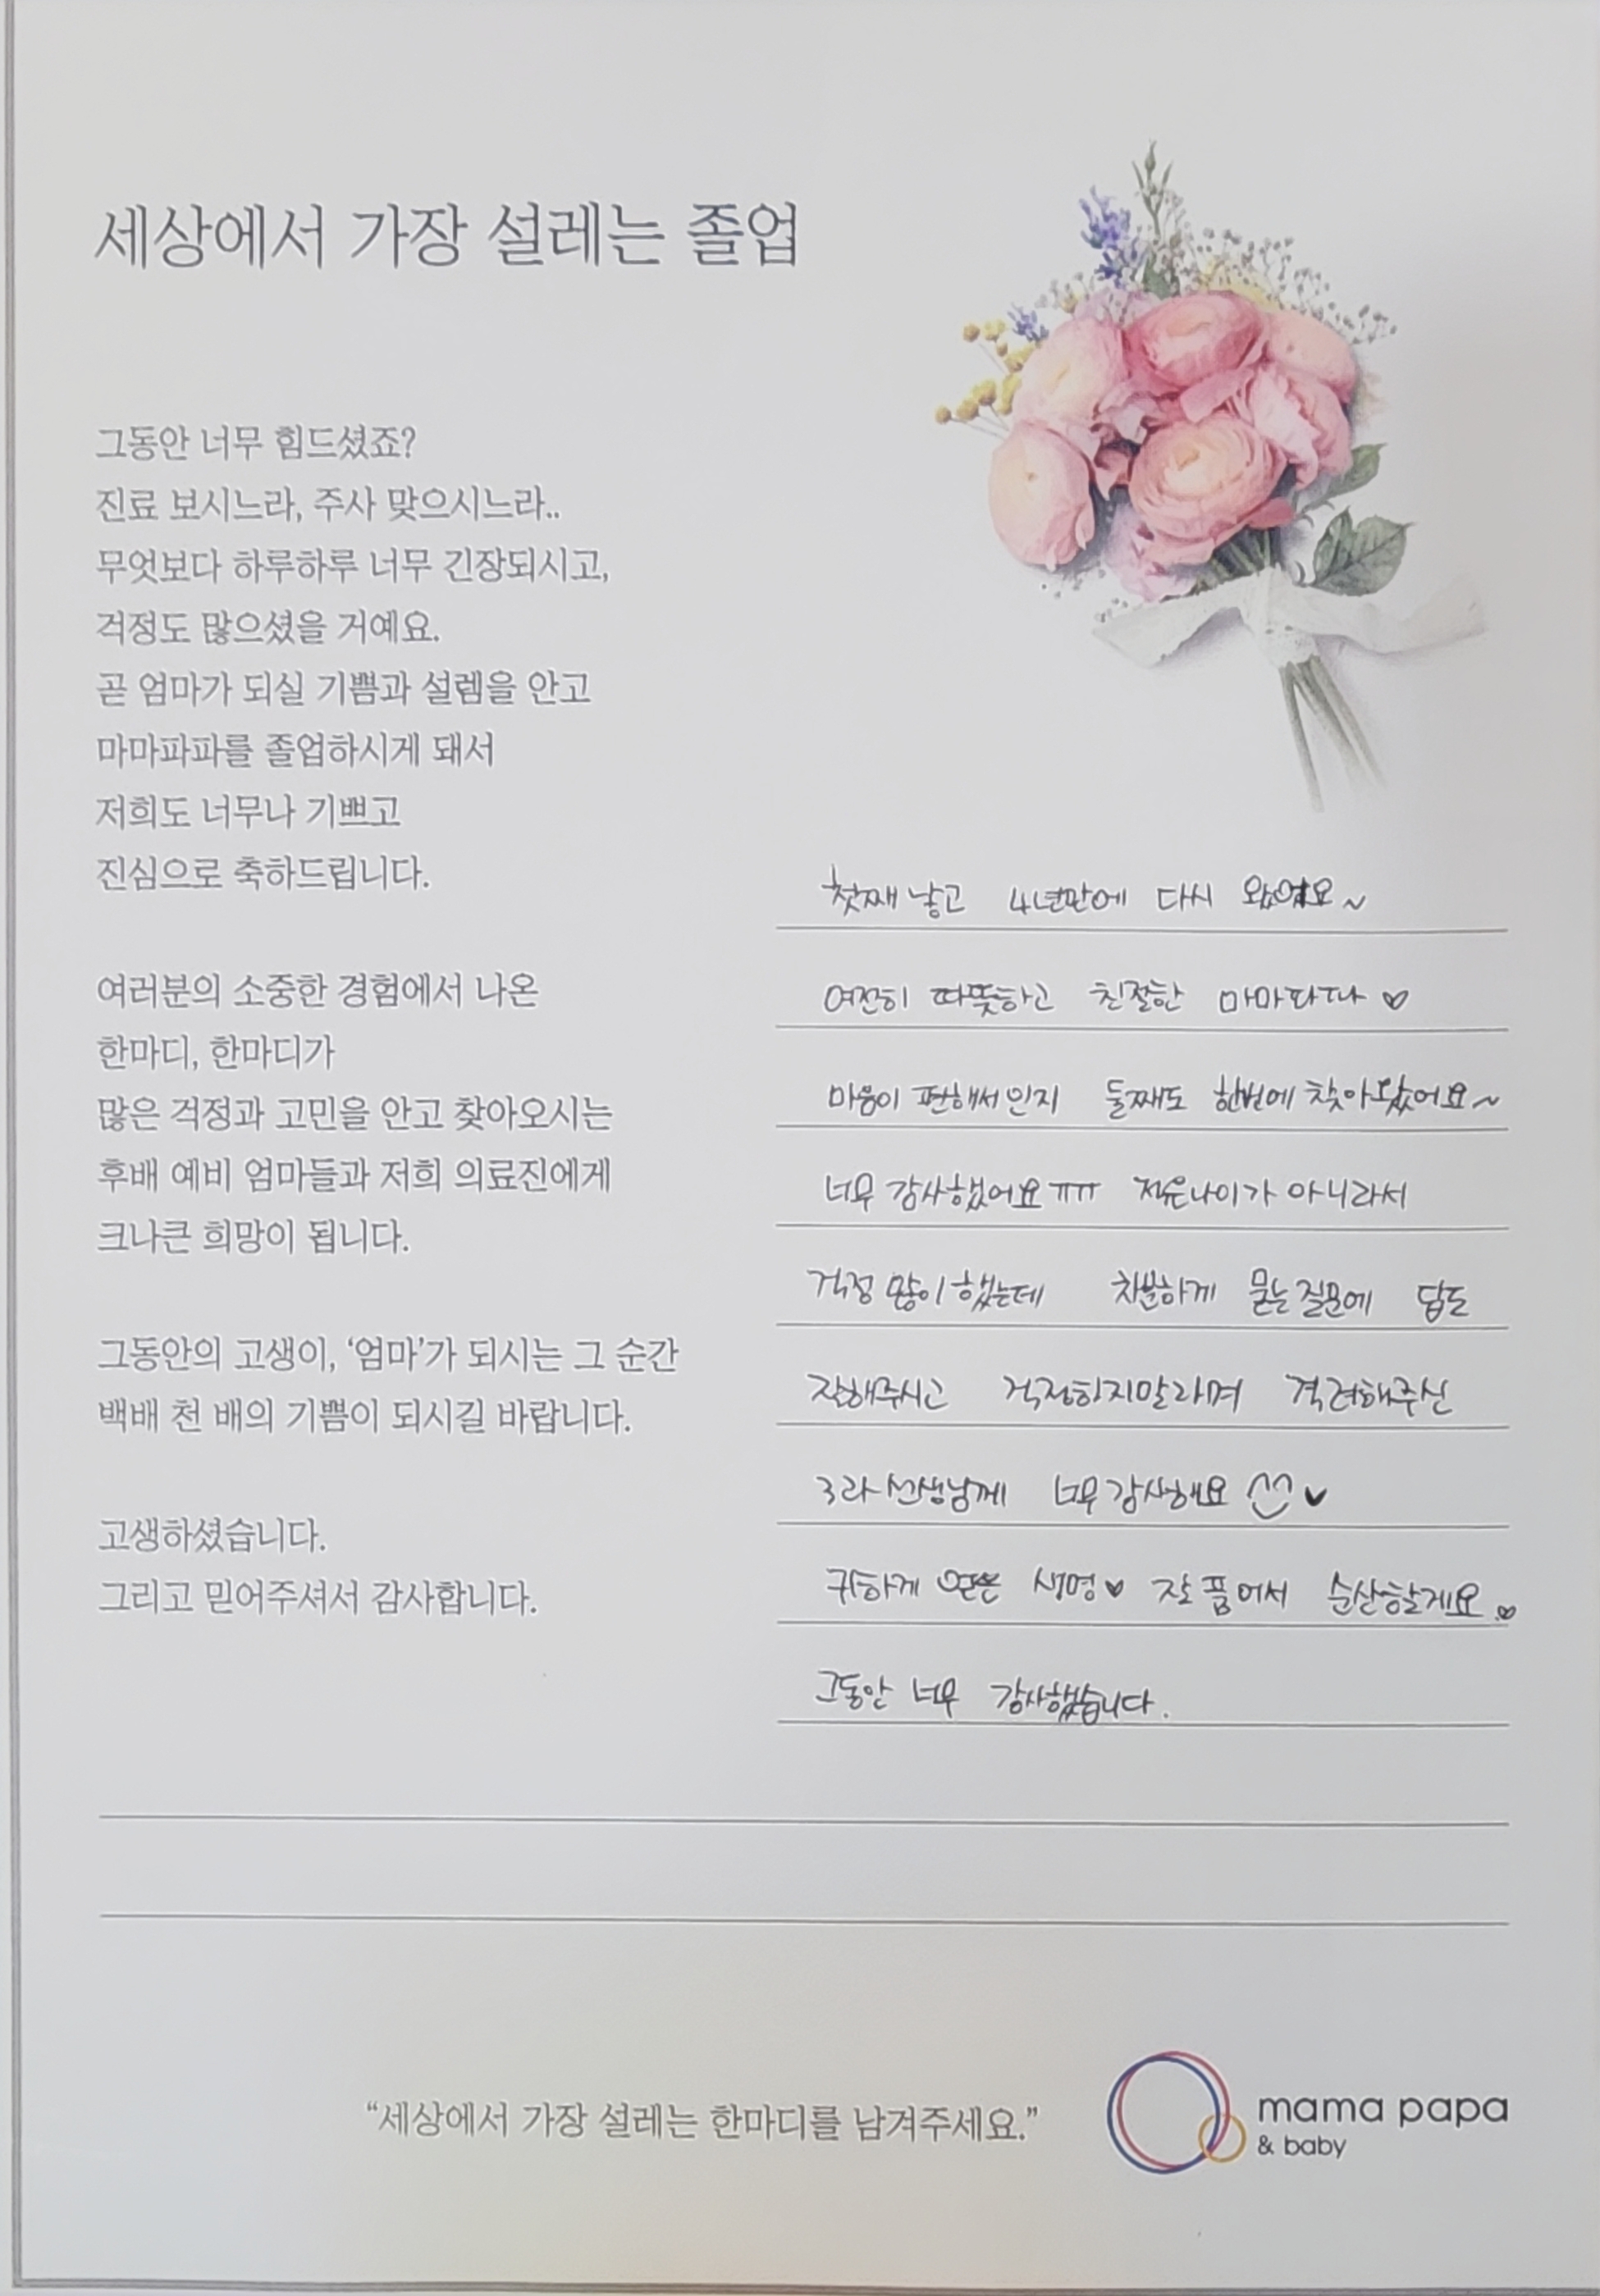 세상에서 가장 설레는 졸업
그동안 너무 힘드셨죠?
진료 보시느라, 주사 맞으시느라..
무엇보다 하루하루 너무 긴장되시고,
걱정도 많으셨을 거예요.
곧 엄마가 되실 기쁨과 설렘을 안고
마마파파를 졸업하시게 돼서
저희도 너무나 기쁘고
진심으로 축하드립니다.
여러분의 소중한 경험에서 나온
한마디, 한마디가
많은 걱정과 고민을 안고 찾아오시는
후배 예비 엄마들과 저희 의료진에게
크나큰 희망이 됩니다.
그동안의 고생이, ‘엄마’가 되시는 그 순간
백배 천 배의 기쁨이 되시길 바랍니다.
고생하셨습니다.
그리고 믿어주셔서 감사합니다.
첫째 낳고 4년만에 다시 왔어요~
여전히 따뜻하고 친절한 마마파파 ♡
마음이 편해서인지 둘째도 한번에 찾아왔어요~
너무 감사했어요ㅠㅠ 젊은나이가 아니라서
걱정 많이 했는데 차분하게 묻는 질문에 답도
잘해주시고 걱정하지말라며 격려해주신
3과 선생님께 너무 감사해요 ♥
귀하게 얻은 생명♥ 잘 품어서 순산할게요.♡
그동안 너무 감사했습니다.
“세상에서 가장 설레는 한마디를 남겨주세요.”
mama papa
& baby